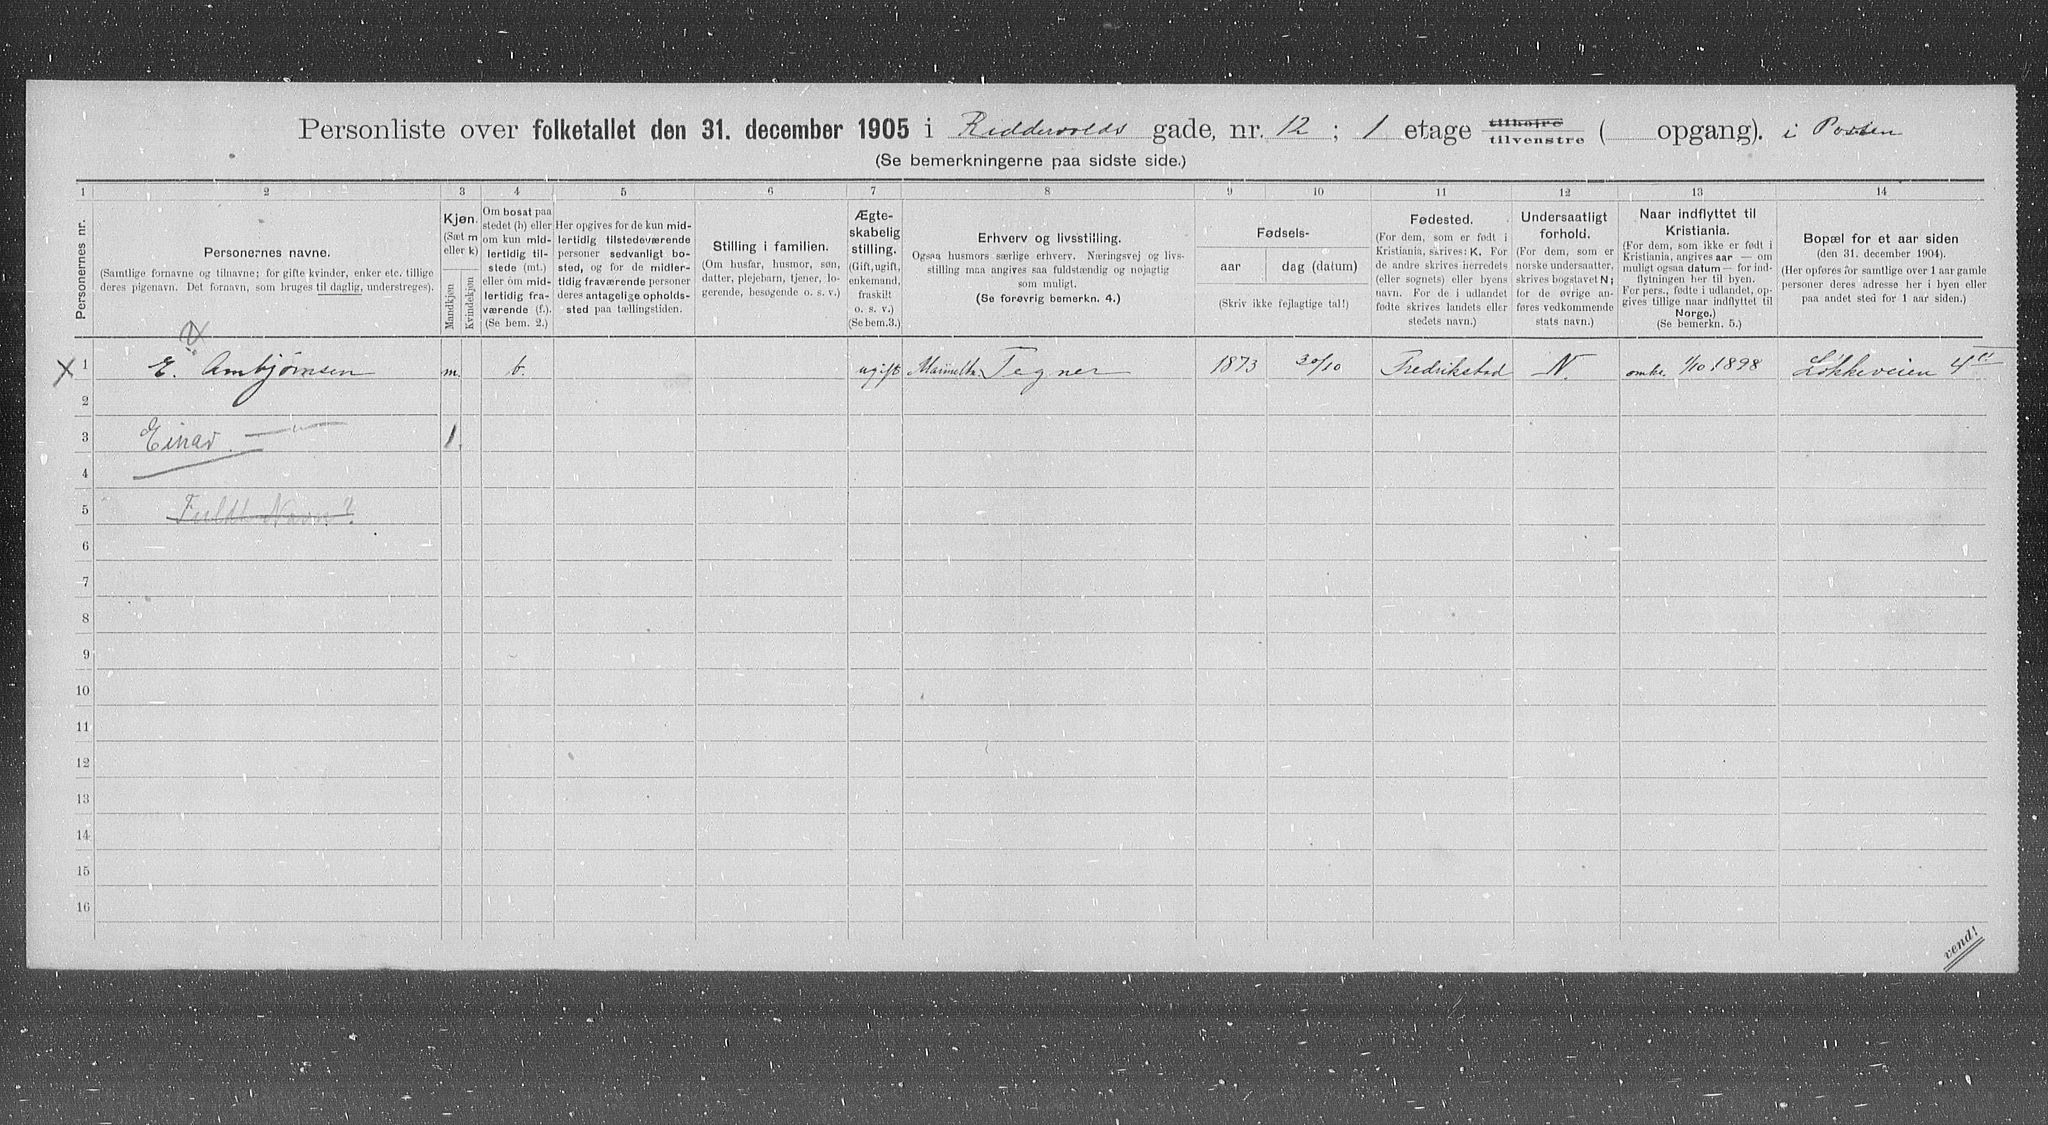 Personliste over folketallet den 31. december 1905 i Riddervolds gade, nr. 12; 1 etage tilhøire tilvenstre ( opgang). i Porten
(Se bemerkningerne paa sidste side.)
1 2 3 4 5 6 7 8 9 10 11 12 13 14
Personernes nr.
Personernes navne.
(Samtlige fornavne og tilnavne; for gifte kvinder, enker etc. tillige
deres pigenavn. Det fornavn, som bruges til daglig, understreges).
Kjøn.
(Sæt m
eller k)
Mandkjøn
Kvindekjøn
Om bosat paa
stedet (b) eller
om kun mid-
lertidig til-
stede (mt.)
eller om mid-
lertidig fra-
værende (f.).
(Se bem. 2.)
Her opgives for de kun mid-
lertidig tilstedeværende
personer sedvanligt bo-
sted, og for de midler-
tidig fraværende personer
deres antagelige opholds-
sted paa tællingstiden.
Stilling i familien.
(Om husfar, husmor, søn,
datter, plejebarn, tjener, lo-
gerende, besøgende o. s. v.)
Ægte-
skabelig
stilling.
(Gift, ugift,
enkemand,
fraskilt
o. s. v.)
(Se bem.3.)
Erhverv og livsstilling.
Ogsaa husmors særlige erhverv. Næringsvej og livs-
stilling maa angives saa fuldstændig og nøjagtig
som muligt.
(Se forøvrig bemerkn. 4.)
Fødsels-
aar
dag (datum)
(Skriv ikke fejlagtige tal!)
Fødested.
(For dem, som er født i
Kristiania, skrives: K. For
de andre skrives herredets
(eller sognets) eller byens
navn. For de i udlandet
fødte skrives landets eller
stedets navn.)
Undersaatligt
forhold.
(For dem, som er
norske undersaatter,
skrives bogstavet N;
for de øvrige an-
føres vedkommende
stats navn.)
Naar indflyttet til
Kristiania.
(For dem, som ikke er født i
Kristiania, angives aar — om
muligt ogsaa datum — for ind-
flytningen her til byen.
For pers., fødte i udlandet, op-
gives tillige naar indflyttet til
Norge.)
(Se bemerkn. 5.)
Bopæl for et aar siden
(den 31. december 1904).
(Her opføres for samtlige over 1 aar gamle
personer deres adresse her i byen eller
paa andet sted for 1 aar siden.)
1 E. Ambjørnsen m. b. ugift Tegner 1873 30/10 Fredrikstad N. omkr. 1/10 1898 Løkkeveien 4 II
2
3 Einar — " — 1.
4
5 Fuldt Navn?
6
7
8
9
10
11
12
13
14
15
16
vend!